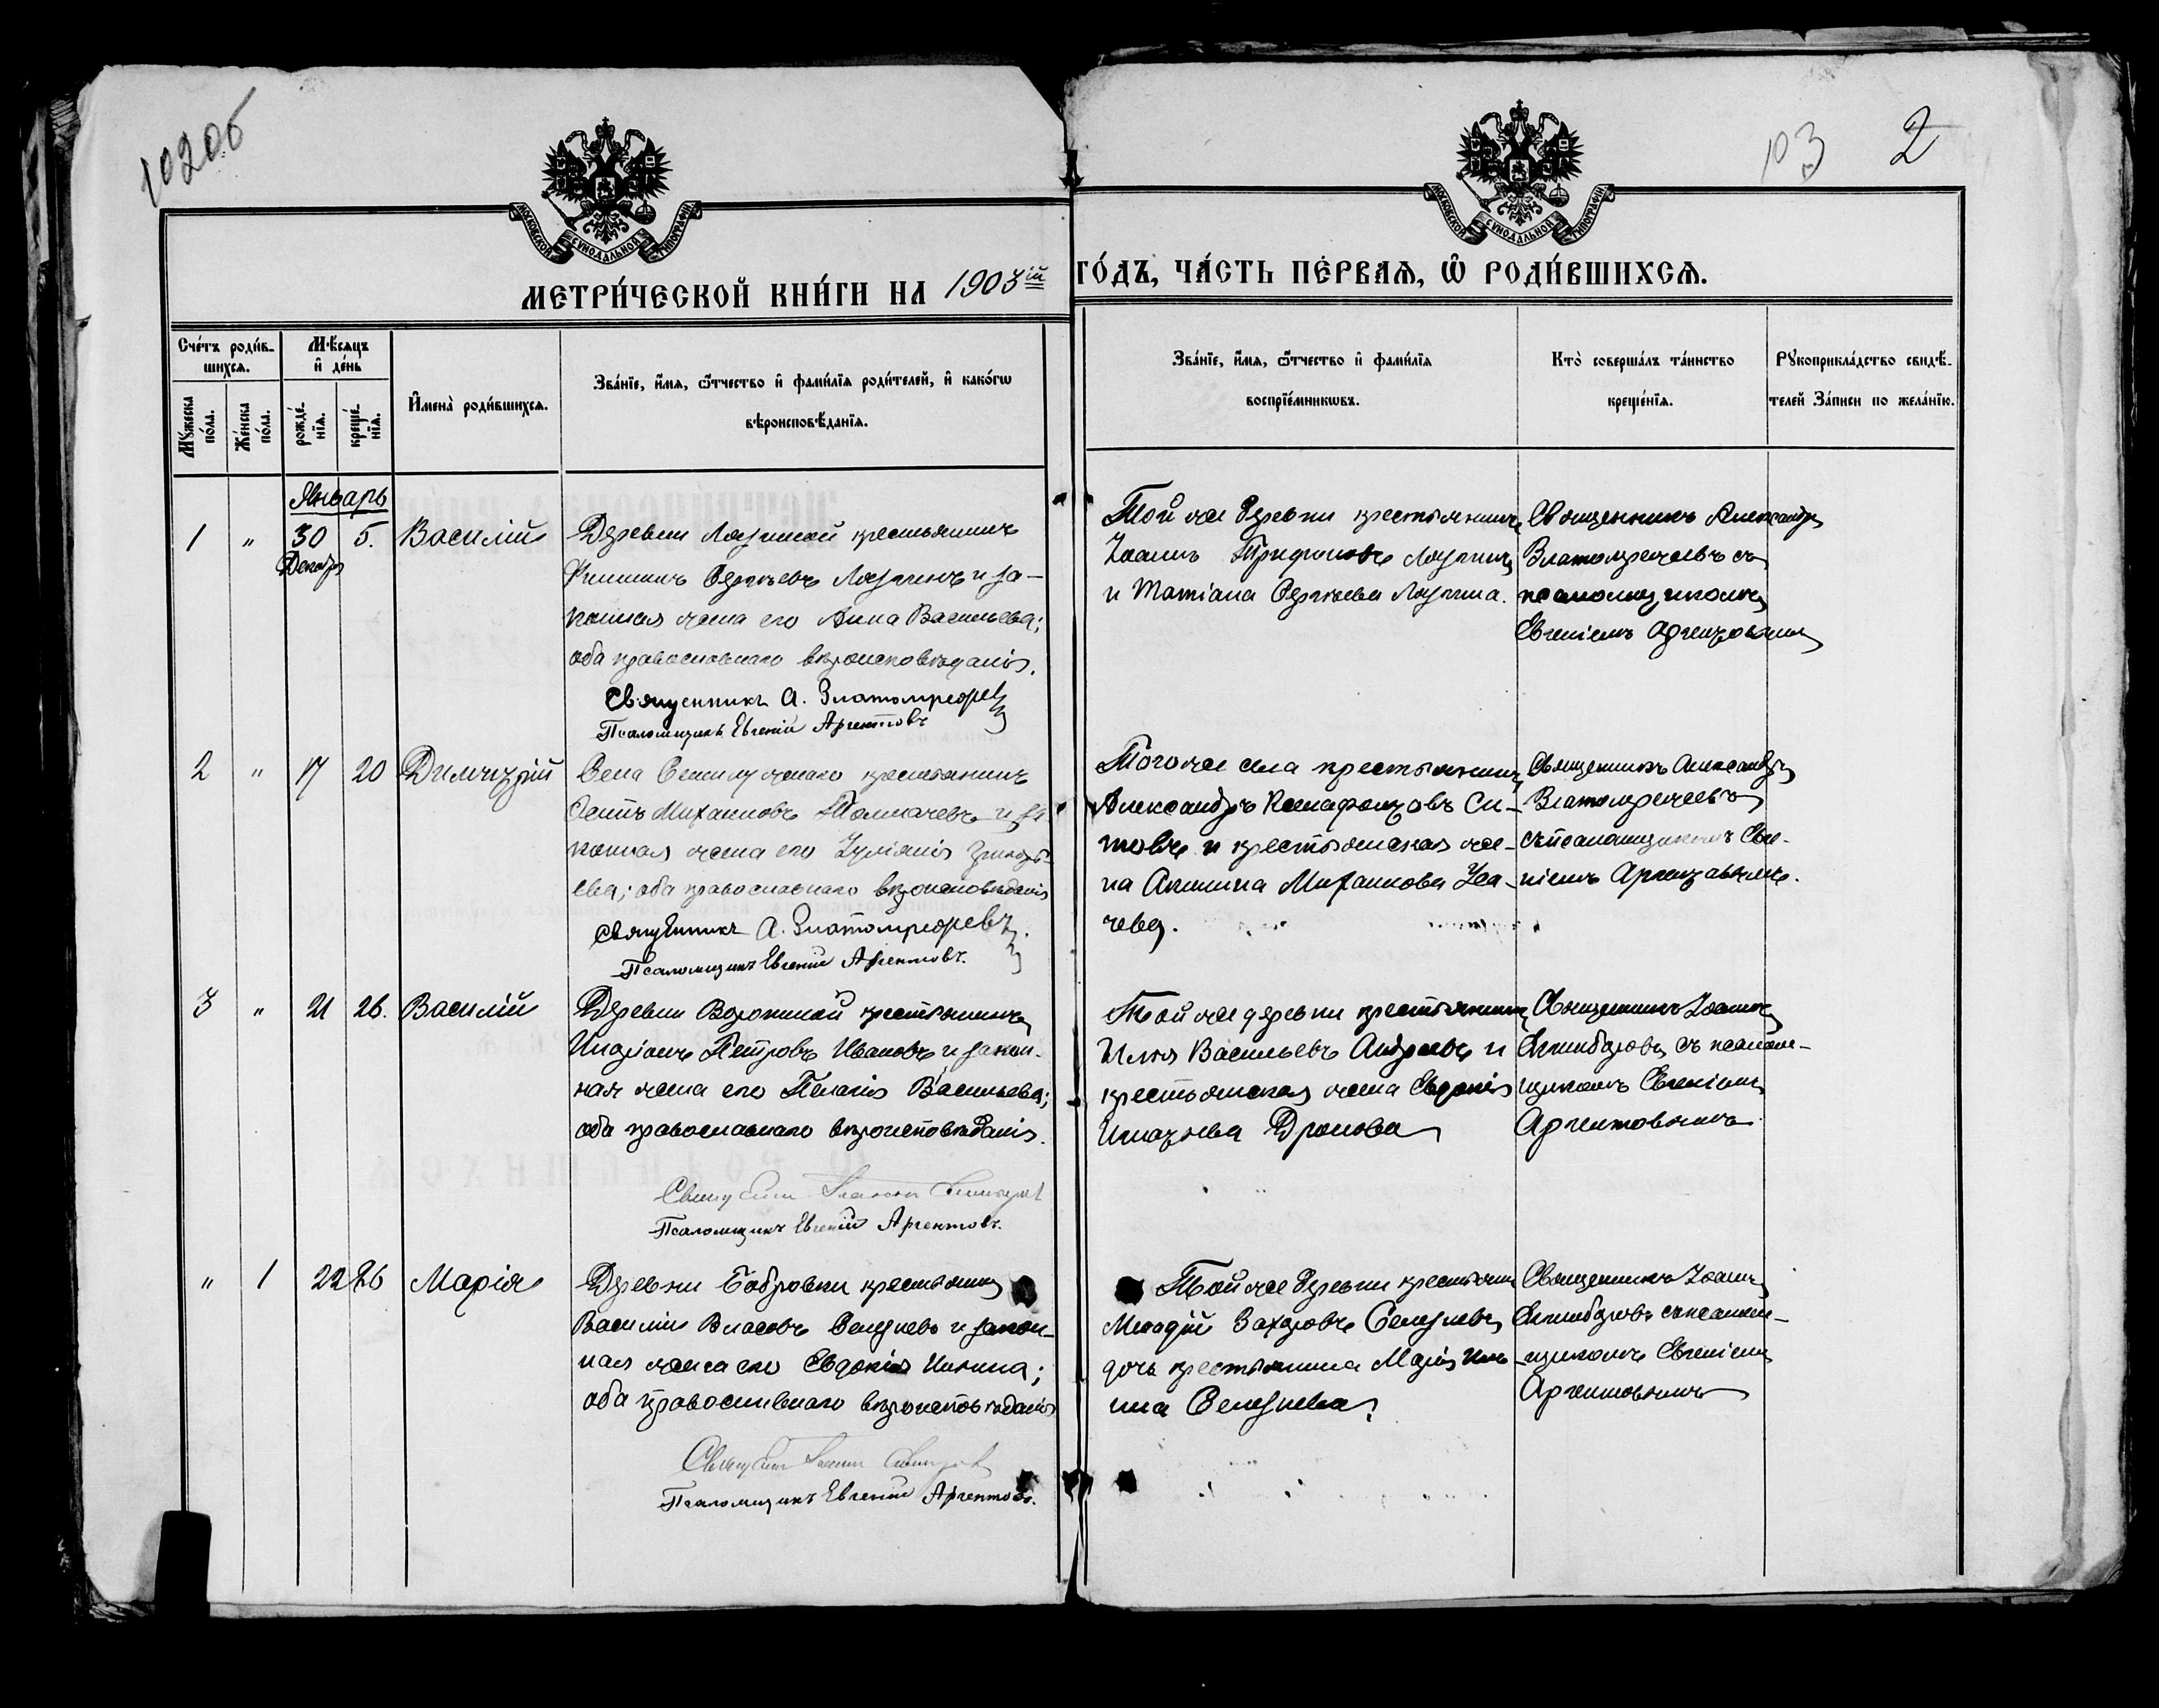 102об
103 2
МОСКОВСКОЙ СѴНОДАЛЬНОЙ ТИПОГРАФІИ
МОСКОВСКОЙ СѴНОДАЛЬНОЙ ТИПОГРАФІИ
МЕТРИ́ЧЕСКОЙ КНИ́ГИ НА 1903ій ГО́ДЪ, ЧА́СТЬ ПЕ́РВАѦ, Ѿ РОДИ́ВШИХСѦ.
Сче́тъ роди́в-
шихсѧ.
Мꙋжеска
по́ла.
Же́нска
по́ла.
Мѣ́сѧцъ
и де́нь
рожде́-
нїѧ.
креще́-
нїѧ.
Имена̀ роди́вшихсѧ.
Зва́нїе, и́мѧ, ѻ́тчество и фами́лїѧ роди́телей, и како́гѡ
вѣроисповѣ́данїѧ.
Зва́нїе, и́мѧ, ѻ́тчество и фами́лїѧ
воспрїе́мникѡвъ.
Кто̀ соверша́лъ та́инство
креще́нїѧ.
Рꙋкоприкла́дство свидѣ́-
телей за́писи по жела́нїю.
Январь
1 " 30 5. Василій
Декабря
Деревни крестьянинъ
Сергѣевъ и за-
конная жена его Анна Васильева;
оба православнаго вѣроисповѣданія.
Священникъ А. Златомрежевъ
Псаломщикъ Евгеній Аргентовъ
Той же деревни крестьянинъ
Іоаннъ Трифоновъ
и Татіана Сергѣева
Священникъ Александръ
Златомрежевъ съ
псаломщикомъ
Евгеніемъ Аргентовымъ
2 " 17 20 Димитрій
Села крестьянинъ
Михаиловъ Толмачевъ и за-
конная жена его Іуліанія
ева; оба православнаго вѣроисповѣданія
Священникъ А. Златомрежевъ.
Псаломщикъ Евгеній Аргентовъ.
Того же села крестьянинъ
Александръ Ксенофонтовъ Си-
товъ и крестьянская же-
на Михаилова
чева.
Священникъ Александръ
Златомрежевъ
съ псаломщикомъ Евге-
ніемъ Аргентовымъ.
3 " 21 26. Василій
Деревни Ворониной крестьянинъ
Петровъ Ивановъ и закон-
ная жена его Пелагія Васильева;
оба православнаго вѣроисповѣданія.
Псаломщикъ Евгеній Аргентовъ.
Той же деревни крестьянинъ
Илія Васильевъ Андреевъ и
крестьянская жена Евдокія
Игнатьева Дронова
Священникъ Іоаннъ
съ псалом-
щикомъ Евгеніемъ
Аргентовымъ
" 1 22 26 Марія
Деревни Бобровки крестьянинъ
Василій Власовъ Селезневъ и закон-
ная жена его Евдокія
оба православнаго вѣроисповѣданія
Псаломщикъ Евгеній Аргентовъ.
Той же деревни крестьянинъ
Захаровъ Селезневъ,
дочь крестьянина Марія
Селезнева.
Священникъ Іоаннъ
съ псалом-
щикомъ Евгеніемъ
Аргентовымъ